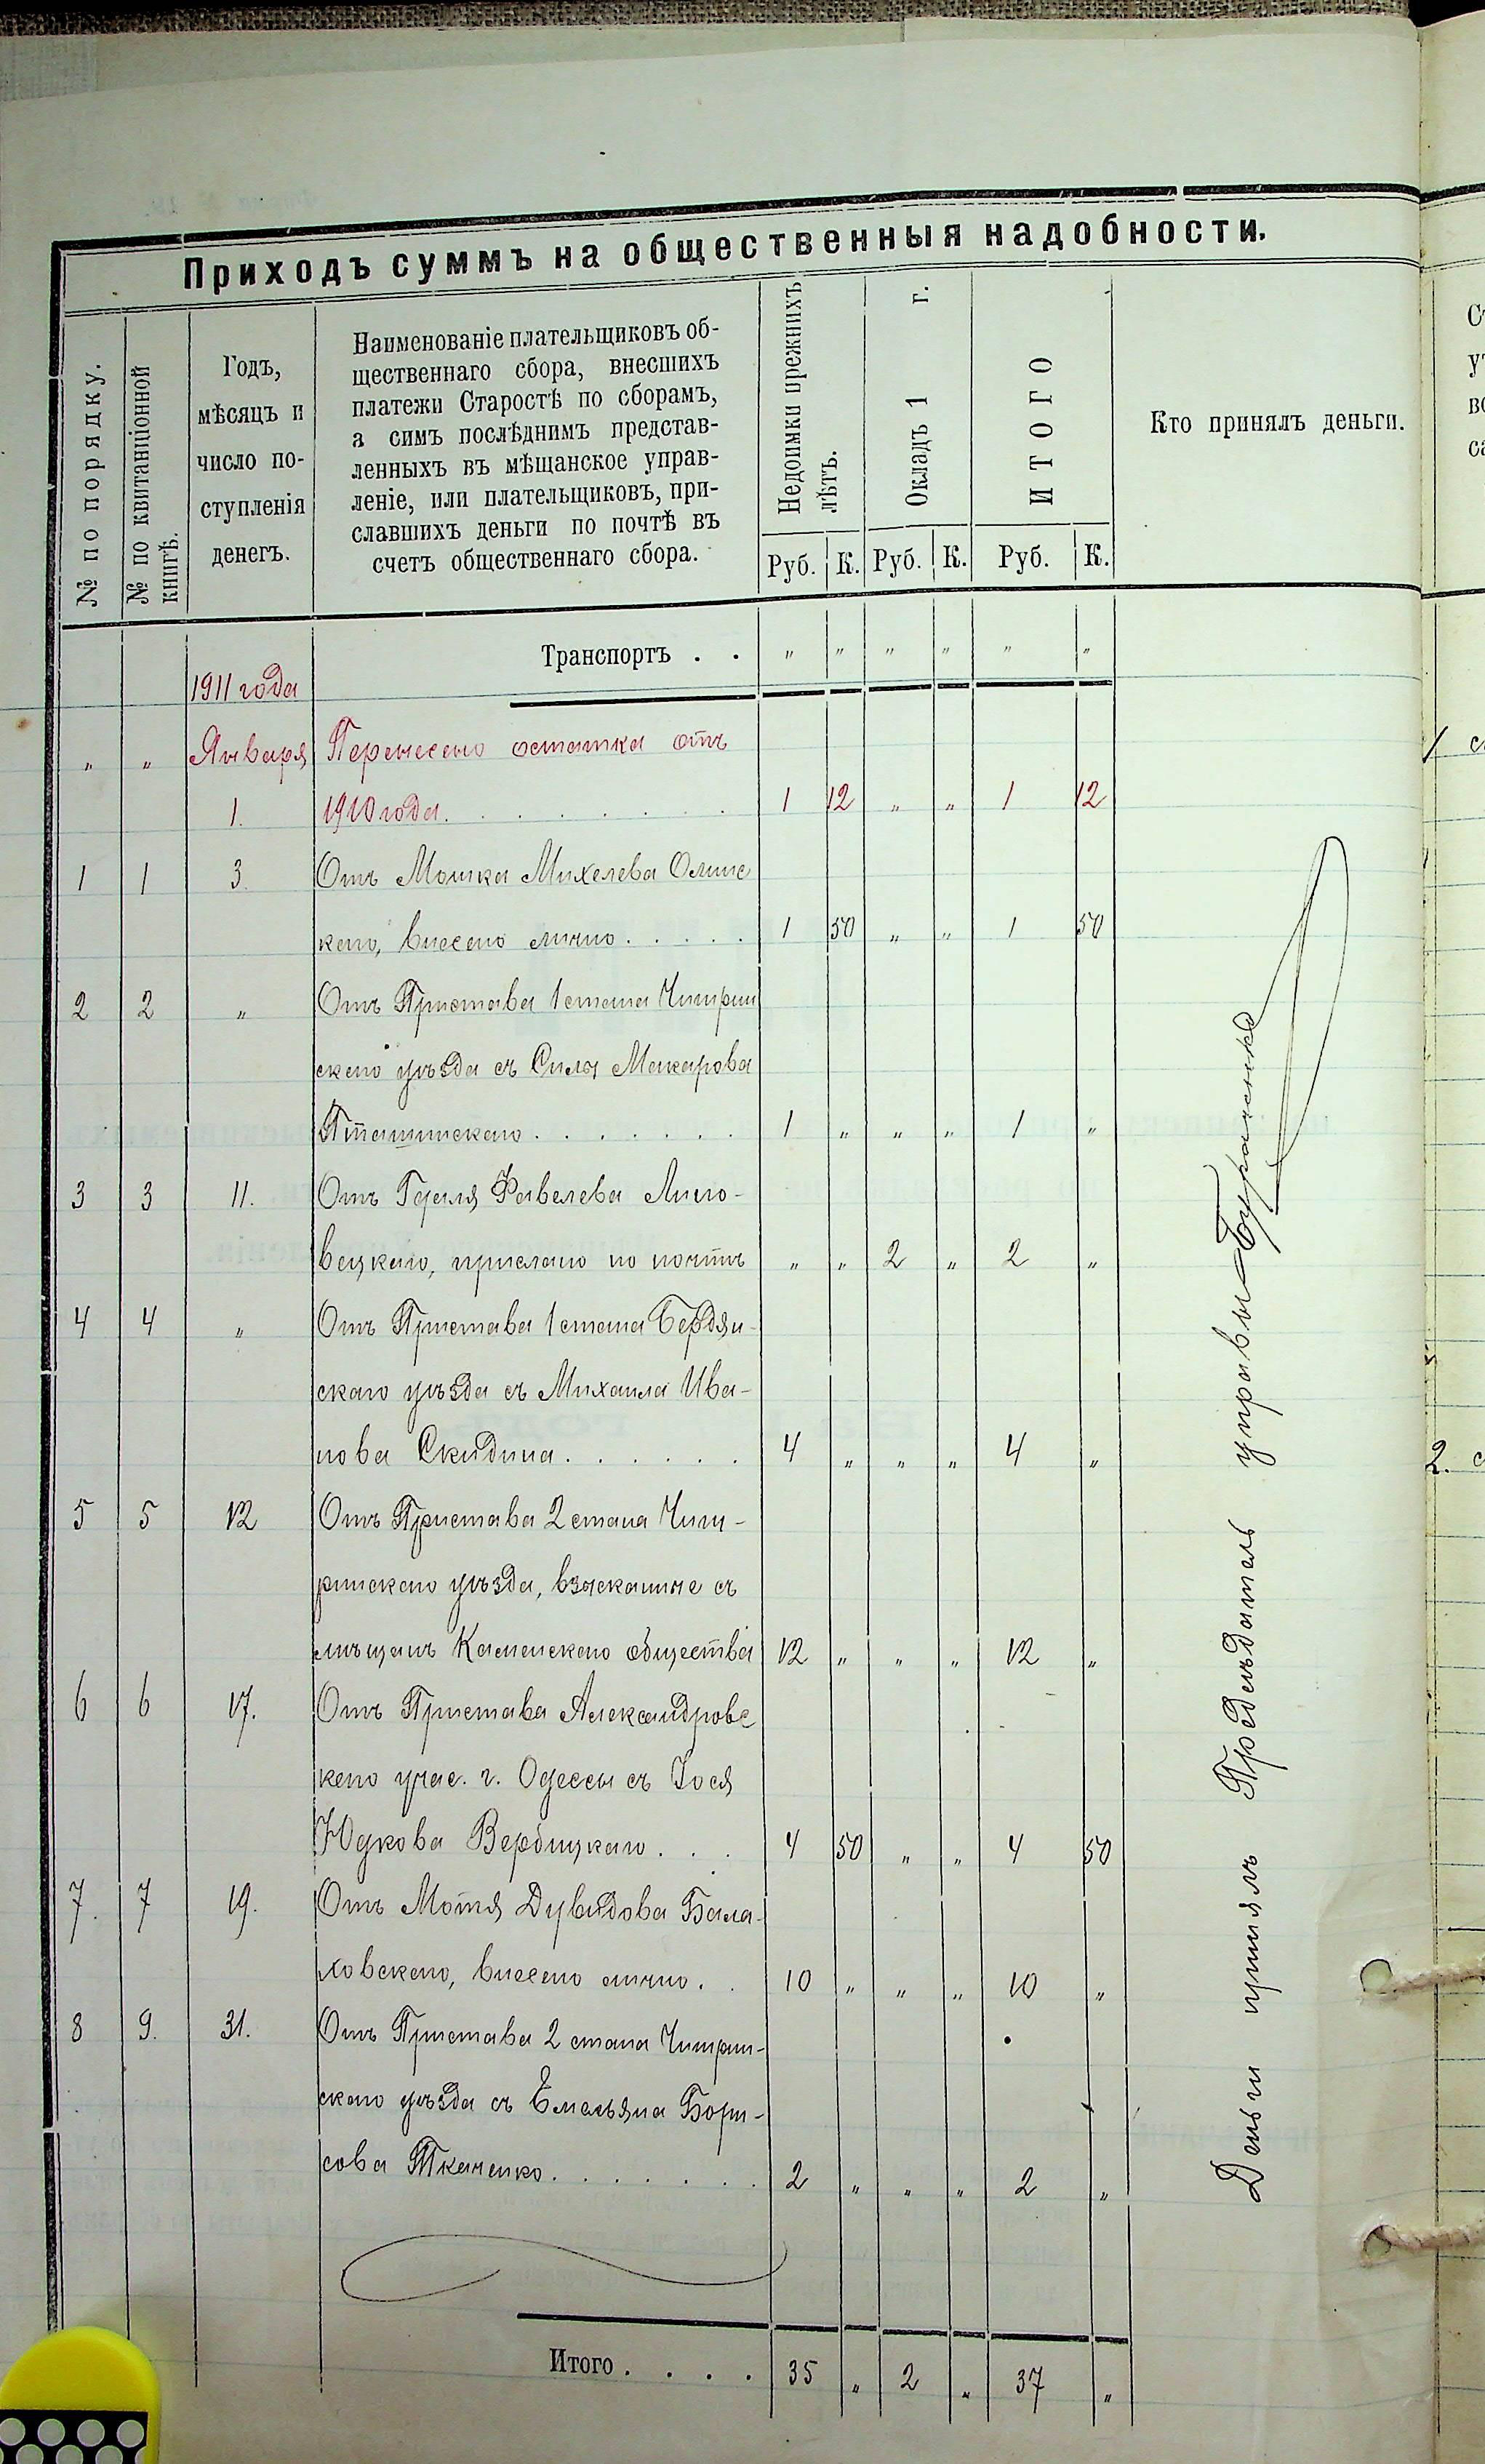 Приходъ суммъ на общественныя надобности.
№ по порядку.
№ по квитанціонной
книгѣ.
Годъ,
мѣсяцъ и
число по-
ступленія
денегъ.
Наименованіе плательщиковъ об-
щественнаго сбора, внесшихъ
платежи Старостѣ по сборамъ,
а симъ послѣднимъ представ-
ленныхъ въ мѣщанское управ-
леніе, или плательщиковъ, при-
славшихъ деньги по почтѣ въ
счетъ общественнаго сбора.
Недоимки прежнихъ
лѣтъ.
Окладъ 1 г.
ИТОГО
Кто принялъ деньги.
Руб. К. Руб. К. Руб. К.
Транспортъ . . „ „ „ „ „ „
1911 года
„ „ Января Перенесено остатка отъ
1. 1910 года. . . . . . . 1 12 „ „ 1 12
1 1 3. Отъ Мошка Михелева Олинс
каго, внесено лично . . . . . 1 50 „ „ 1 50
2 2 „ Отъ Пристава 1 стана Чигрин
скаго уѣзда съ Силы Макарова
Пташинскаго . . . . . . . 1 „ „ „ 1 „
3 3 11. Отъ Герша Фавелева Липо-
вецкаго, прислано по почтѣ „ „ 2 „ 2 „
4 4 „ Отъ Пристава 1 стана Бердян-
скаго уѣзда съ Михаила Ива-
нова Скидина . . . . . . 4 „ „ „ 4 „
5 5 12 Отъ Пристава 2 стана Чиги-
ринскаго уѣзда, взысканные съ
мѣщанъ Каменскаго общества 12 „ „ „ 12 „
6 6 17. Отъ Пристава Александровс
каго учас. г. Одессы съ Іося
Юдкова Вербицкаго . . . 4 50 „ „ 4 50
7. 7 19. Отъ Мотя Дувидова Бала-
ховскаго, внесено лично . . 10 „ „ „ 10 „
8 9. 31. Отъ Пристава 2 стана Чигрин-
скаго уѣзда съ Емельяна Бори-
сова Ткаченко . . . . . . . 2 „ „ „ 2 „
Итого . . . . 35 „ 2 „ 37 „
Деньги принялъ Предсѣдатель управы